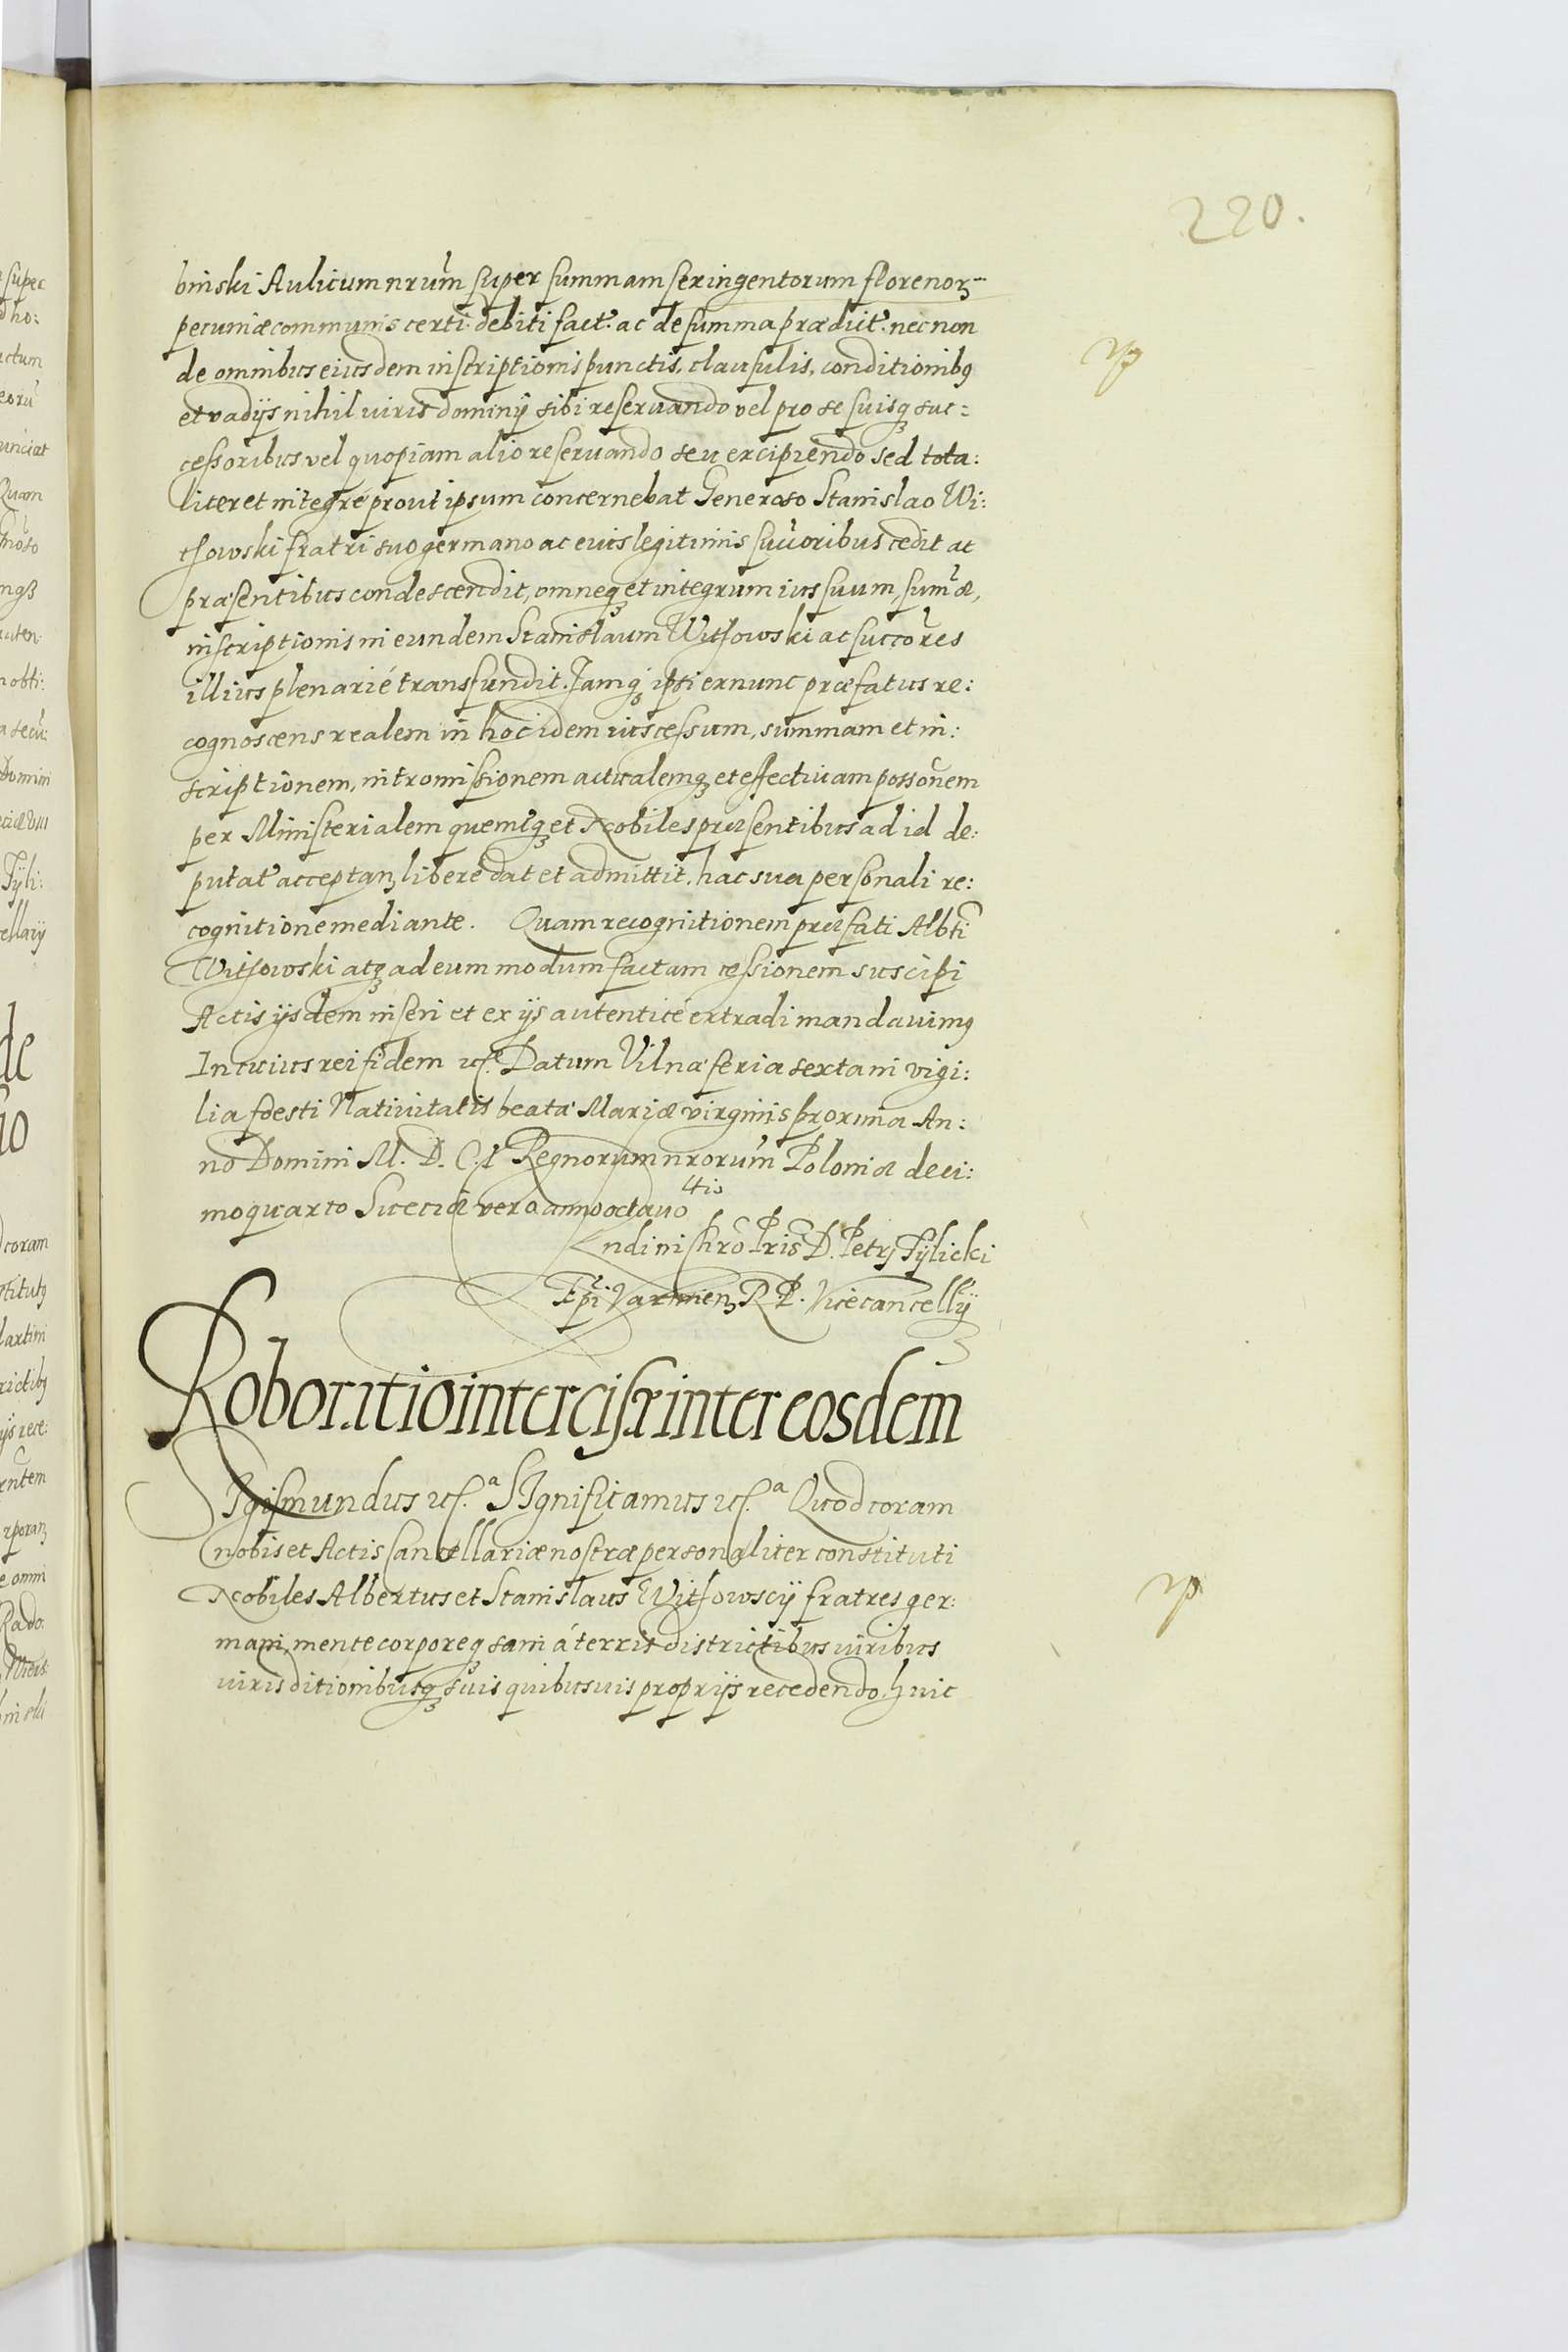 220.
binski Aulicum nrum̃ super summam sexingentorum florenorꝫ
pecuniæ communis certi debiti fact. ac de summa prædict. necnon
de omnibus eiusdem inscriptionis punctis, clausulis, conditionibꝰ
et vadijs nihil iuris dominij sibi reseruando vel pro se suisqꝫ suc:
cessoribus vel quopiam alio reseruando seu excipiendo sed tota:
liter et integré prout ipsum concernebat Generoso Stanislao Wi:
tsowski fratri suo germano ac eius legitimis succoribus cedit ac
præsentibus condescendit, omneqꝫ et integrum ius suum, sum̃æ,
inscriptionis in eundem Stanislaum Witsowski ac succores
illius plenarié transfundit. Jamqꝫ ipsi ex nunc præfatus re:
cognoscens realem in hoc idem ius cessum, summam et in:
scriptionem, intromissionem actualemqꝫ et effectiuam possonem
per Ministerialem quemqꝫ et Nobiles præsentibus ad id de:
putat acceptanꝫ libere dat et admittit. hac sua personali re:
cognitione mediante. Quam recognitionem præfati Albti
Witsowski atqꝫ ad eum modum factam cessionem suscipi
Actis ijsdem inseri et ex ijs autenticé extradi mandauimꝰ
In cuius rei fidem etc. Datum Vilnæ feria sexta in vigi:
lia foesti Natiuitatis beatæ Mariæ virginis proxima An:
no Domini M. D. C. I Regnorum nrorum̃ Poloniæ deci:
moquarto Sueciæ vero anno octauo
ndi in Chro Pris D. Petri Tylicki
Epi Varmienꝫ R. P. Vicecancellij
Roboratio intercisæ inter eosdem
SIgismundus etc.ª SIgnificamus etc.ª Quod coram
nobis et Actis Cancellariæ nostræ personaliter constituti
Nobiles Albertus et Stanislaus Witsowscij fratres ger:
mani, mente corporeqꝫ sani á terris districtibus iuribus
iurisditionibusqꝫ suis quibusuis proprijs recedendo. huic